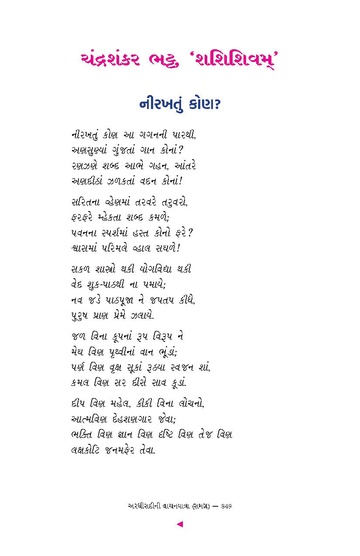 ચંદ્રશંકર ભટ્ટ, ‘શશિશિવમ્’
નીરખતું કોણ?
નીરખતું કોણ આ ગગનની પારથી,
અણસુણ્યાં ગુંજતાં ગાન કોનાં?
રણઝણે શબ્દ આભે ગહન, આંતરે
અણદીઠાં ઝળકતાં વદન કોનાં!
સરિતના વ્હેણમાં તરવરે તરુવરો,
ફરફરે મ્હેકતા શબ્દ કમળે;
પવનના સ્પર્શમાં હસ્ત કોનો ફરે?
શ્વાસમાં પરિમલે વ્હાલ સઘળે!
સકળ શાસ્ત્રો થકી યોગવિદ્યા થકી
વેદ શુક-પાઠથી ના પમાયે;
નવ જડે પાઠપૂજા ને જપતપ કીધે,
પુરુષ પ્રાણ પ્રેમે ઝલાયે.
જળ વિના કૂપનાં રૂપ વિરૂપ ને
મેઘ વિણ પૃથ્વીનાં વાન ભૂંડાં;
પર્ણ વિણ વૃક્ષ સૂકાં રૂઠ્યા સ્વજન શાં,
કમલ વિણ સર દીસે સાવ કૂડાં.
દીપ વિણ મહેલ, કીકી વિના લોચનો,
આત્મવિણ દેહશણગાર જેવા;
ભક્તિ વિણ જ્ઞાન વિણ દૃષ્ટિ વિણ તેજ વિણ
લક્ષકોટિ જનમફેર તેવા.
અરધીસદીની વાચનયાત્રા (સમગ્ર) — 849